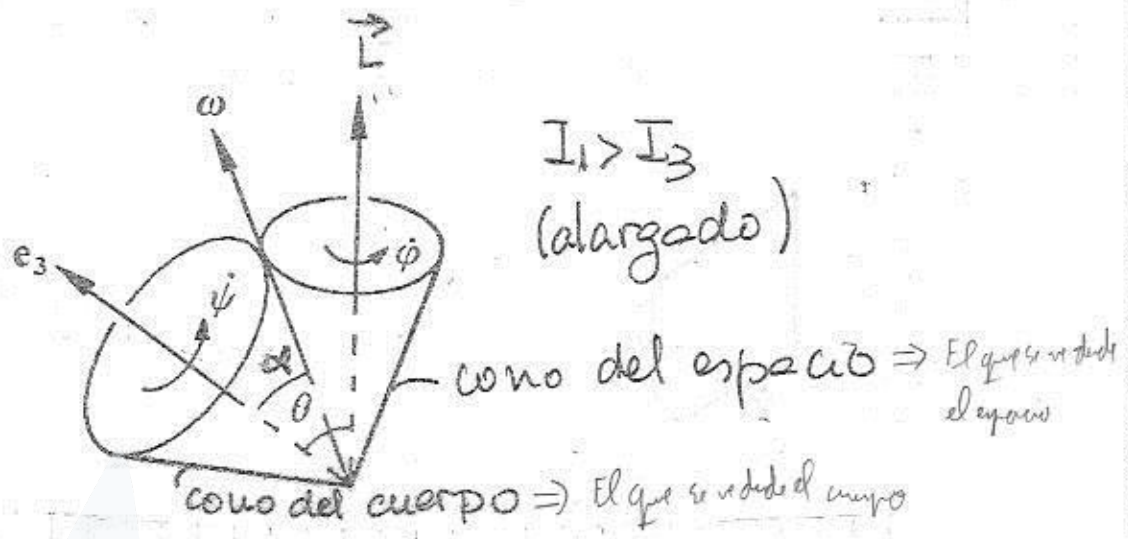 L
ω
I₁ > I₃
(alargado)
e₃
ψ̇
φ̇
α
θ
cono del espacio ⇒ El que se ve desde
el espacio
cono del cuerpo ⇒ El que se ve desde el cuerpo